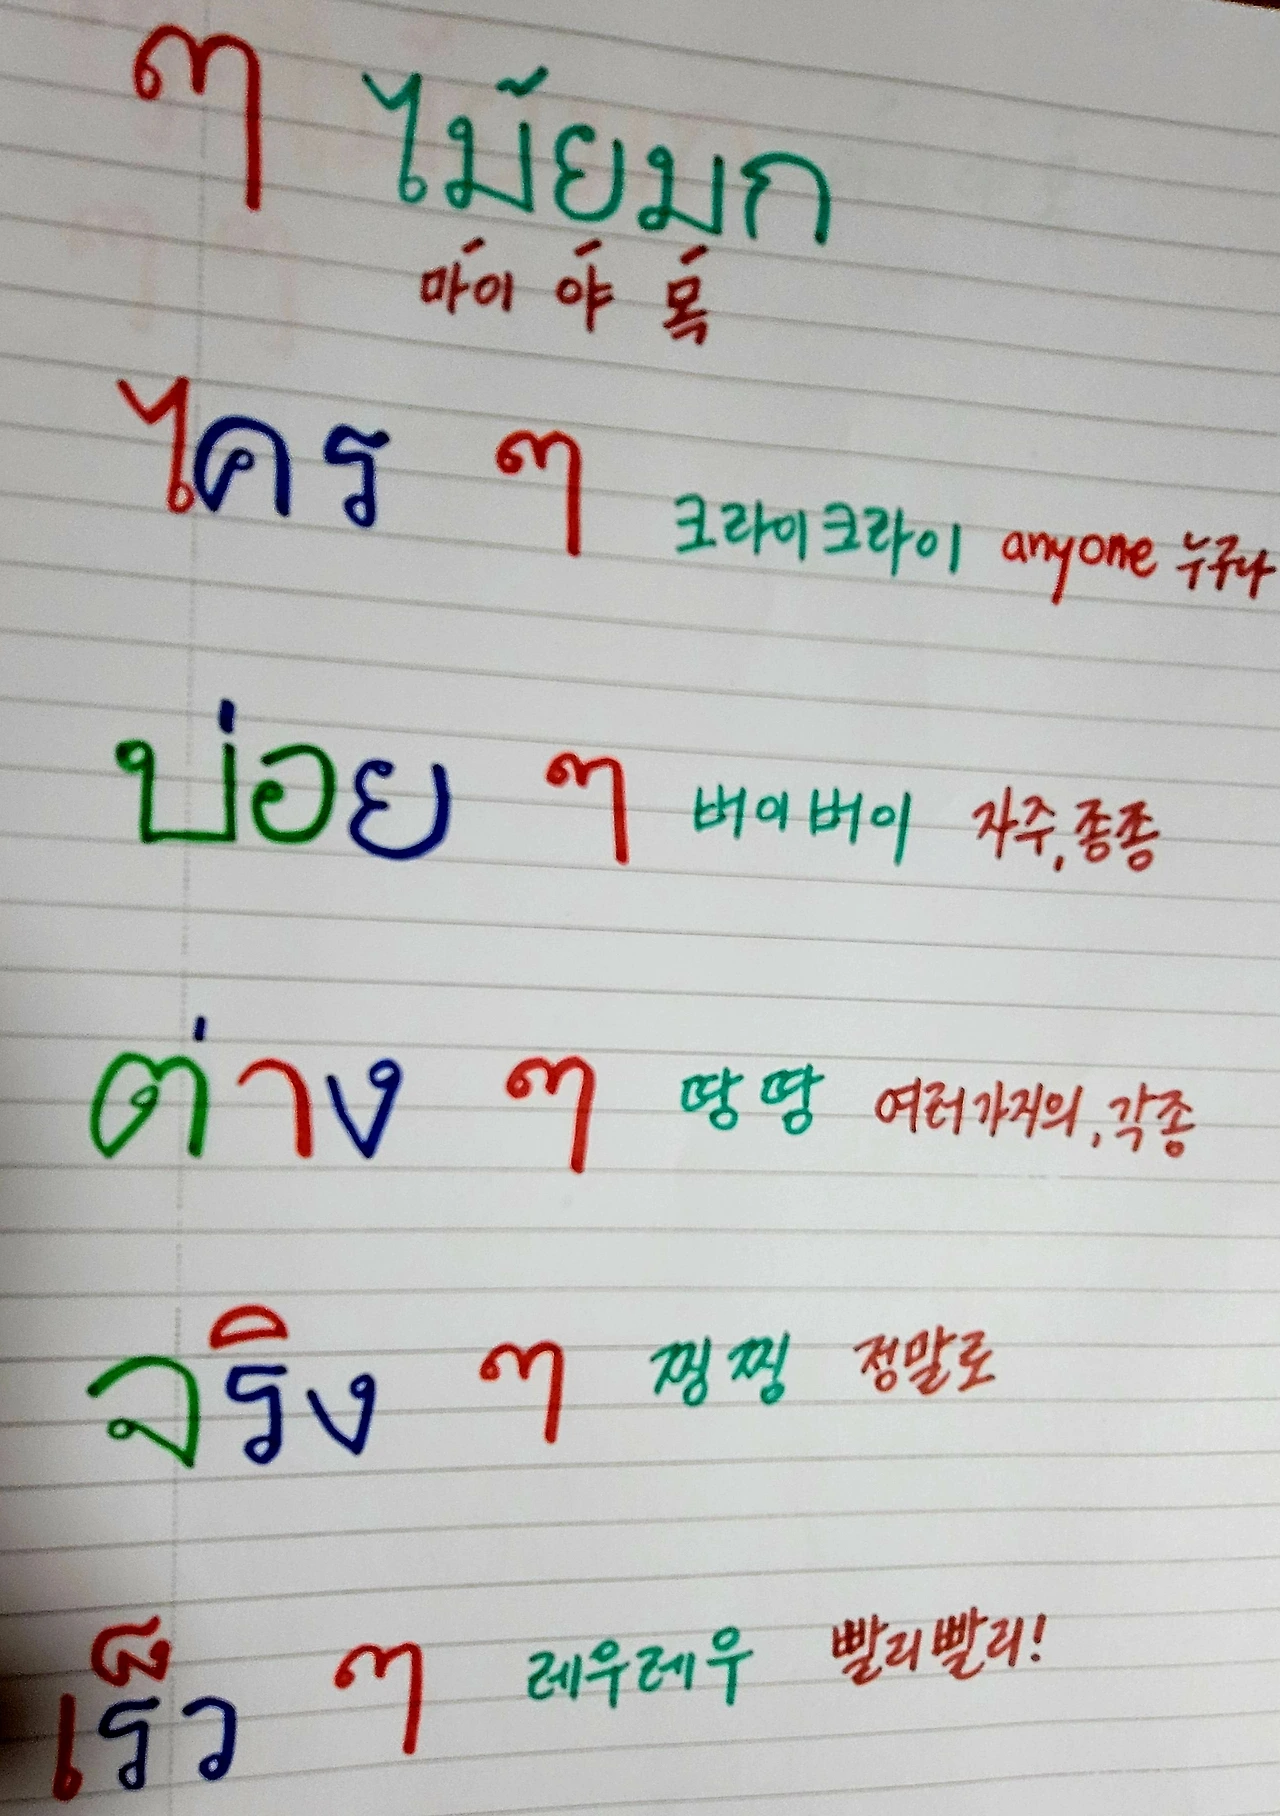 ๆ ไม้ยมก
마이 야 목
ไคร ๆ 크라이크라이 anyone 누구나
บ่อย ๆ 버이버이 자주, 종종
ต่าง ๆ 땅땅 여러가지의, 각종
จริง ๆ 찡찡 정말로
เร็ว ๆ 레우레우 빨리빨리!